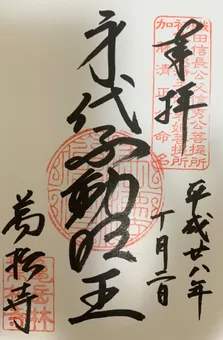 奉拝
織田信長公父信秀公菩提所
加藤清正命名
平成廿八年
月二日
身代不動明王
萬松寺
亀岳林